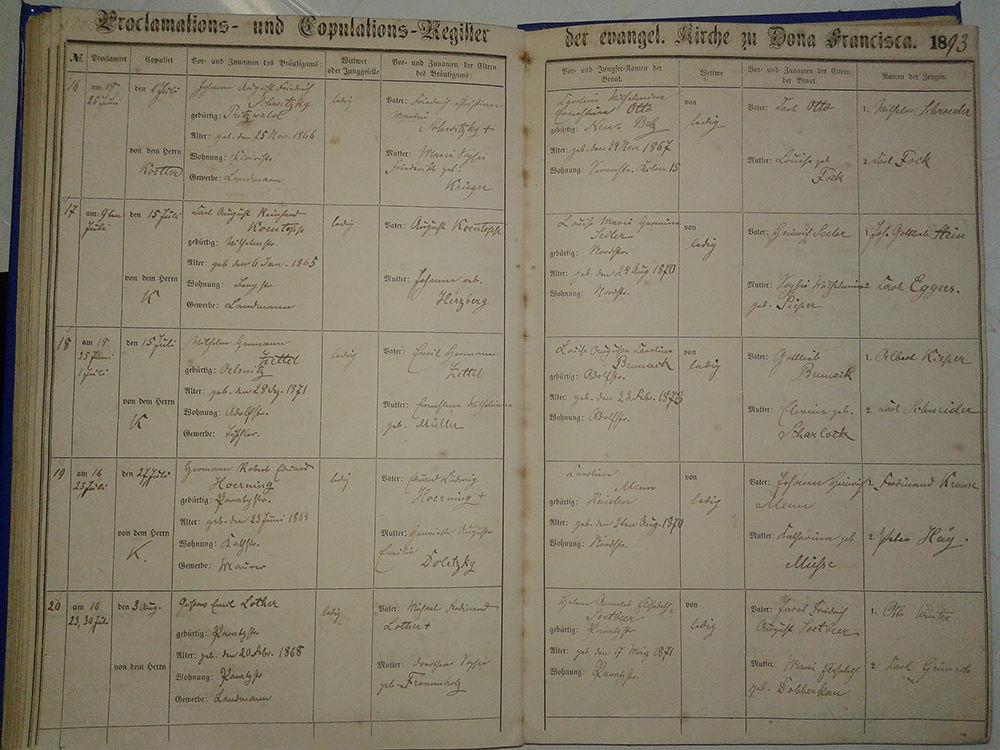 Proclamations- und Copulations-Register
der evangel. Kirche zu Dona Francisca. 1893
№ Proclamirt Copulirt Vor- und Zunamen des Bräutigams: Wittwer oder Junggeselle Vor- und Zunamen der Eltern des Bräutigams:
Vor- und Jungfer-Namen der Braut. Wittwe Vor- und Zunamen der Eltern der Braut. Namen der Zeugen.
16 am 18 den 1 Juli Johann August Friedrich ledig Vater: Friedrich Christian
25 Juni Schwitzky Martin
gebürtig: Pritzwald Schwitzky +
Alter: geb. den 25 Nov. 1866
von dem Herrn Wohnung: Mutter: Maria Sophie
Koelle Gewerbe: Landmann Friederike geb.
Krüger
Caroline Wilhelmine von Vater: Carl Otto 1. Wilhelm Schroeder
Ernestine Otto ledig
gebürtig: Neus
Alter: geb. den 24 Nov. 1867
Wohnung: 15 Mutter: Louise geb. 2. Carl Fock
Fock
17 am 9ten den 15 Juli Carl August Reinhard ledig Vater: August Koentopp
Juli Koentopp
gebürtig: Wilhelmstr.
Alter: geb. den 6 Jan. 1865
von dem Herrn Wohnung: Mutter: Johanne geb.
K Gewerbe: Landmann Herzberg
Louise Marie Hermine von Vater: Heinrich Seiler 1. Joh. Gottlieb Stein
Seiler ledig
gebürtig: Nordstr.
Alter: geb. den 24 Aug 1870
Wohnung: Nordstr. Mutter: Sophie Wilhelmine 2. Carl Eggers.
geb. Pieper
18 am 18 den 15 Juli Wilhelm Hermann ledig Vater: Emil Hermann
25 Juni Zettel Zettel
1 Juli gebürtig: Oelsnitz
Alter: geb. den 28 Dez. 1871
von dem Herrn Wohnung: Adolfstr. Mutter: Ernestine Wilhelmine
K Gewerbe: Tischler. geb. Müller
Louise Auguste Caroline von Vater: Gottlieb 1. Albert Kieper
Bennack ledig Bennack
gebürtig: Adolfstr.
Alter: geb. den Febr. 1873
Wohnung: Adolfstr. Mutter: geb. 2. Carl Schneider
Scharlock
19 am 16 den 27 Juli Hermann Robert Eduard ledig Vater: Ludwig
23 Juli Hoerning Hoerning +
gebürtig: Paratystr.
Alter: geb. den 23 Juni 1864
von dem Herrn Wohnung: Mutter: Henriette Auguste
K Gewerbe: Maurer Emilie
Doletzky
Caroline von Vater: Johann Heinrich 1. Ferdinand Krause
Menn ledig Menn
gebürtig:
Alter: geb. den 2ten Aug. 1870
Wohnung: Nordstr. Mutter: Katharina geb. 2. Peter
20 am 16 den 3 Aug. Gustav Emil Lother ledig Vater: Michael Ferdinand
23, 30 Juli gebürtig: Paratystr. Lother +
Alter: geb. den 20 Febr. 1868
von dem Herrn Wohnung: Paratystr. Mutter: Dorothea Sophie
Gewerbe: Landmann geb. Frommholz
Helene Amalie Elisabeth von Vater: Jacob Friedrich 1. Otto Winter
Soetbeer ledig August Soetbeer
gebürtig: Paratystr
Alter: geb. den 17 März 1871
Wohnung: Paratystr. Mutter: Maria Elisabeth 2. Carl
geb. Dobberkau